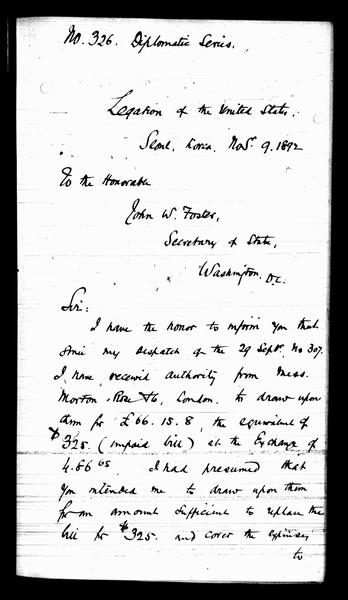 No. 326. Diplomatic Series.
Legation of the United States.
Seoul, Corea. Nov. 9. 1892
To the Honorable
John W. Foster,
Secretary of State,
Washington. D.C.
Sir:
I have the honor to inform you that
since my despatch of the 29 Sept. No 307.
I have received authority from Mess.
Morton Rose & Co, London. to draw upon
them for £66. 15. 8, the equivalent of
$325 (unpaid bill) at the Exchange of
4.86 65. I had presumed that
you intended me to draw upon them
for an amount sufficient to replace the
bill for $325. and cover the expenses
to